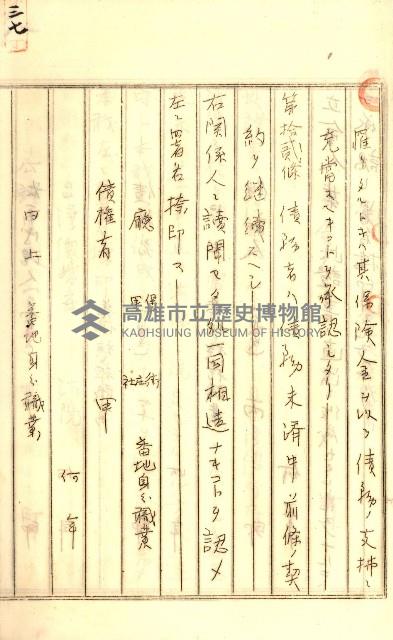 三七
罹リタルトキハ其保険金ヲ以テ債務ノ支拂ニ
充當スベキコトヲ承認シタリ
第拾貳條 債務者ハ義務未済中前條ノ契
約ヲ継續スベシ
右関係人ニ讀聞セタル処一同相違ナキコトヲ認メ
左ニ署名捺印ス
廳 保里 街庄社 番地身分職業
債權者 甲
何年
同上 番地身分職業
高雄市立歷史博物館
KAOHSIUNG MUSEUM OF HISTORY